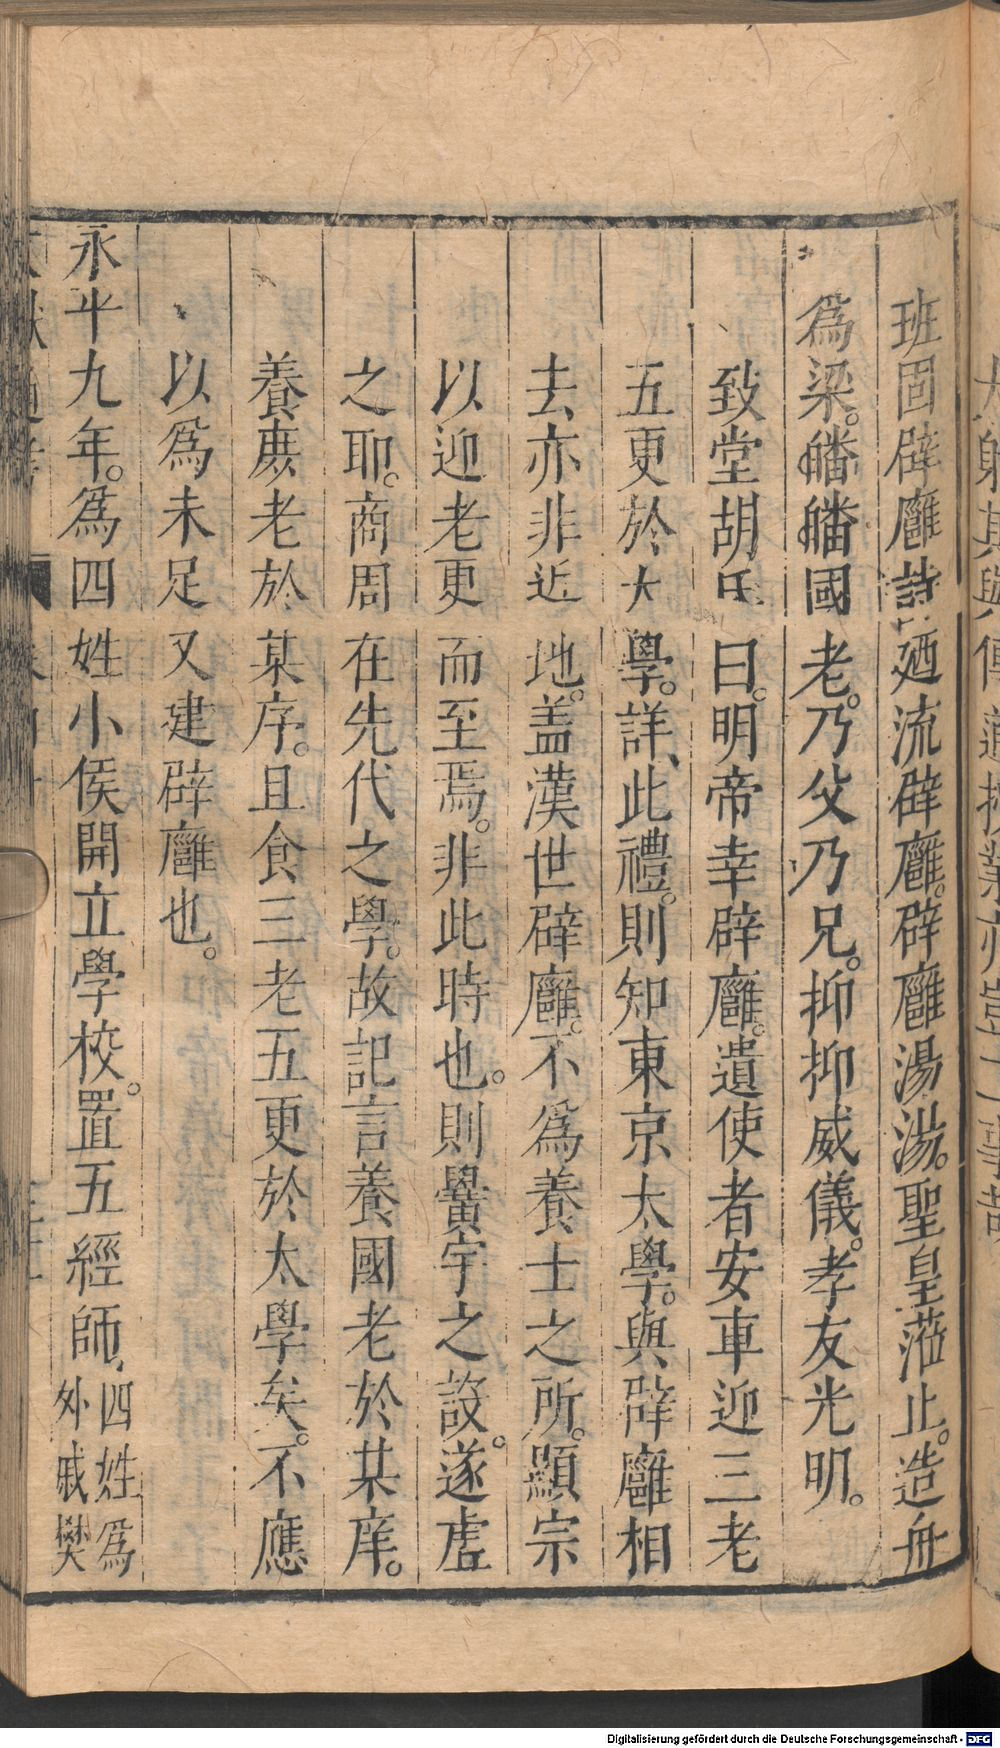 班固辟廱詩廼流辟廱。辟廱湯湯。聖皇蒞止。造舟
爲梁。皤皤國老。乃父乃兄。抑抑威儀。孝友光明。
致堂胡氏曰。明帝幸辟廱。遺使者安車迎三老
五更於太學。詳、此禮。則知東京太學。與辟廱相
去亦非近地。盖漢世辟廱。不爲養士之所。顯宗
以迎老更而至焉。非此時也。則黌宇之設。遂虛
之耶。商周在先代之學。故記言養國老於某庠。
養庶老於某序。且食三老五更於太學矣。不應
以爲未足又建辟廱也。
永平九年。爲四姓小侯開立學校。置五經師、四姓爲
外戚樊
Digitalisierung gefördert durch die Deutsche Forschungsgemeinschaft - DFG